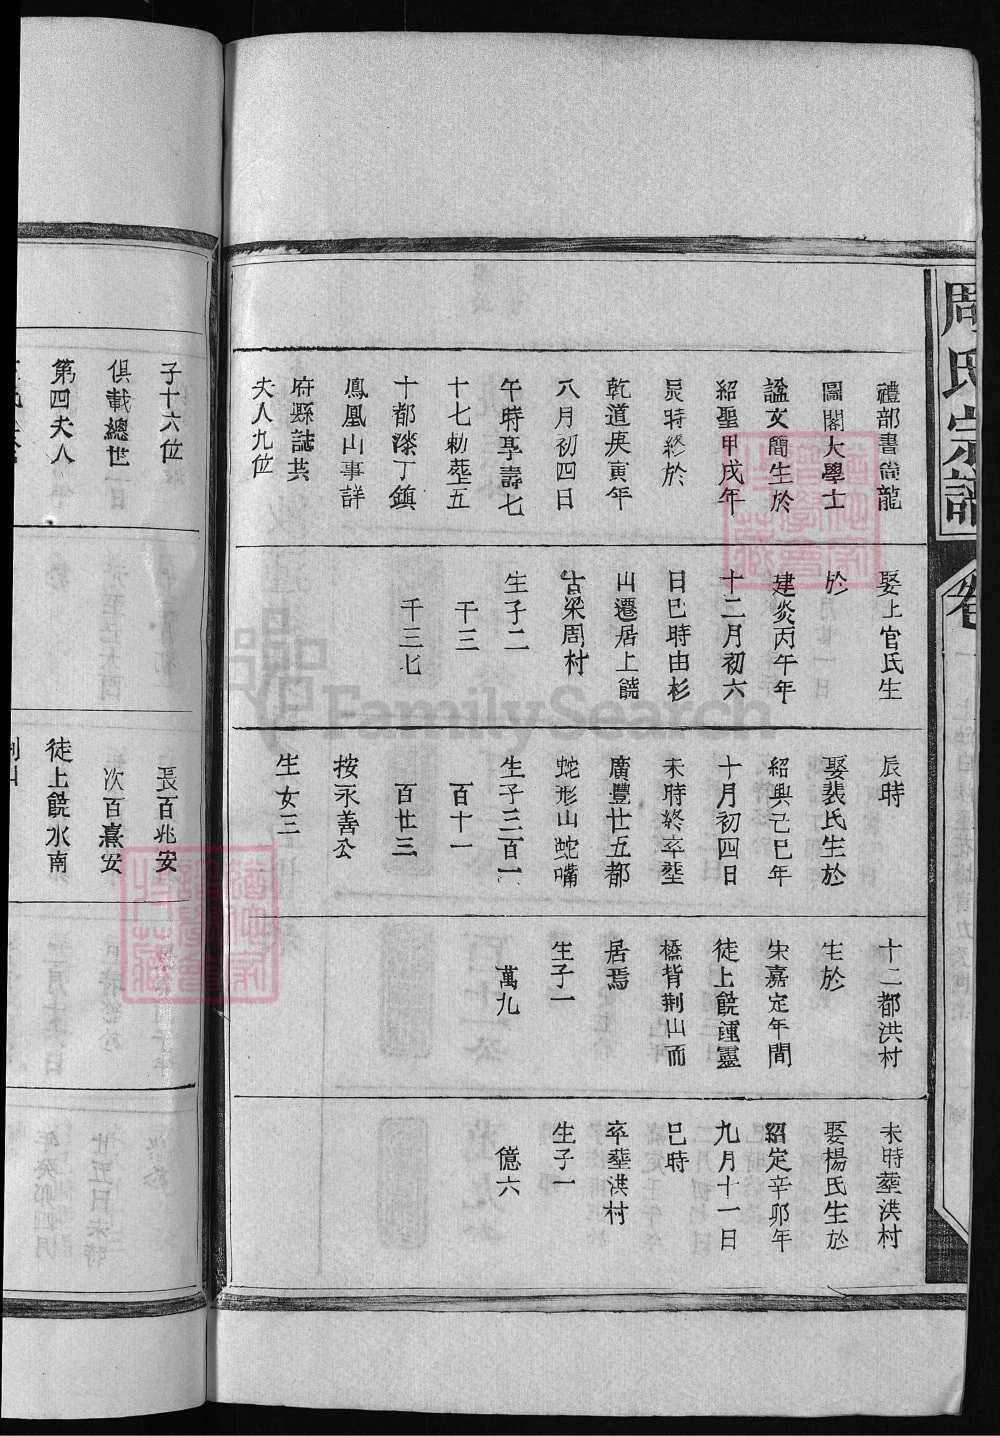 周氏宗譜
卷
禮部書尚龍
圖閣大學士
諡文簡生於
紹聖甲戌年
辰時終於
乾道庚寅年
八月初四日
午時享壽七
十七勅塟五
十都漆丁鎮
鳳凰山事詳
府縣誌共
夫人九位
娶上官氏生
於
建炎丙午年
十二月初六
日巳時由杉
山遷居上饒
古梁周村
生子二
千三
千三七
辰時
娶裴氏生於
紹興己巳年
十月初四日
未時終卒塟
廣豐廿五都
蛇形山蛇嘴
生子三百一
百十一
百廿三
按永善公
生女三
十二都洪村
宅於
宋嘉定年間
徒上饒鍾靈
橋背荆山而
居焉
生子一
萬九
未時塟洪村
娶楊氏生於
紹定辛卯年
九月十一日
巳時
卒塟洪村
生子一
億六
子十六位
俱載總世
第四夫人
長百兆安
次百熹安
徒上饒水南
FamilySearch